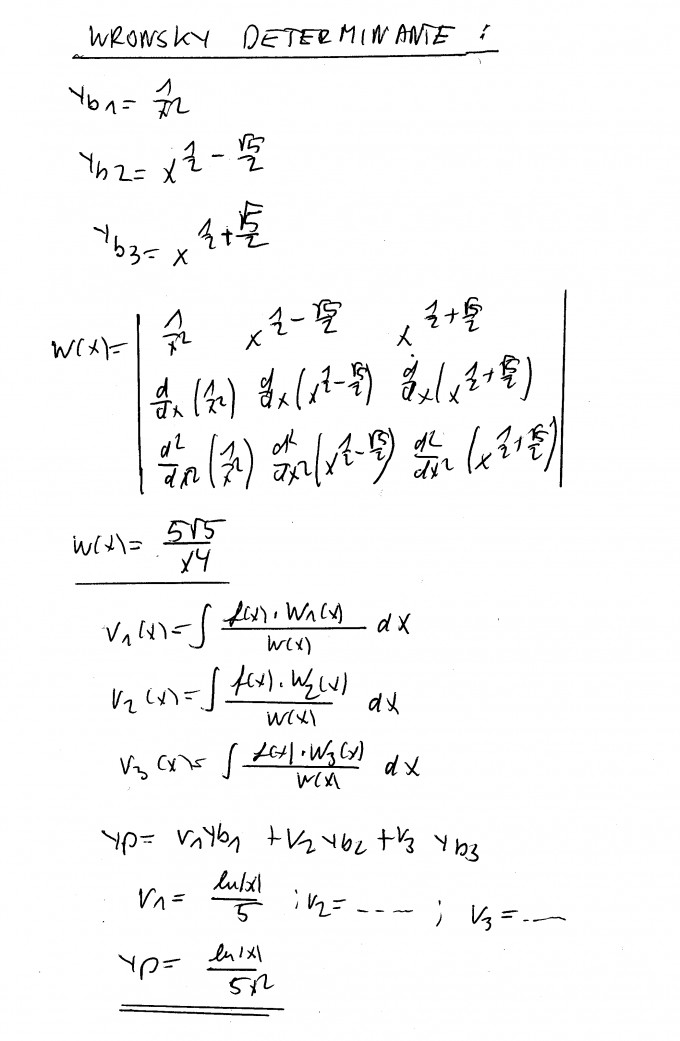 WRONSKY DETERMINANTE :
yb1 = 1/x²
yb2 = x^(1/2 - √5/2)
yb3 = x^(1/2 + √5/2)
W(x) = | 1/x² x^(1/2 - √5/2) x^(1/2 + √5/2) |
| d/dx (1/x²) d/dx (x^(1/2 - √5/2)) d/dx (x^(1/2 + √5/2)) |
| d²/dx² (1/x²) d²/dx² (x^(1/2 - √5/2)) d²/dx² (x^(1/2 + √5/2)) |
W(x) = 5√5/x4
V1(x) = ∫ f(x) · W1(x) / W(x) dx
V2(x) = ∫ f(x) · W2(x) / W(x) dx
V3(x) = ∫ f(x) · W3(x) / W(x) dx
yp = V1 yb1 + V2 yb2 + V3 yb3
V1 = ln|x|/5 ; V2 = ---- ; V3 = ----
yp = ln|x|/5x²